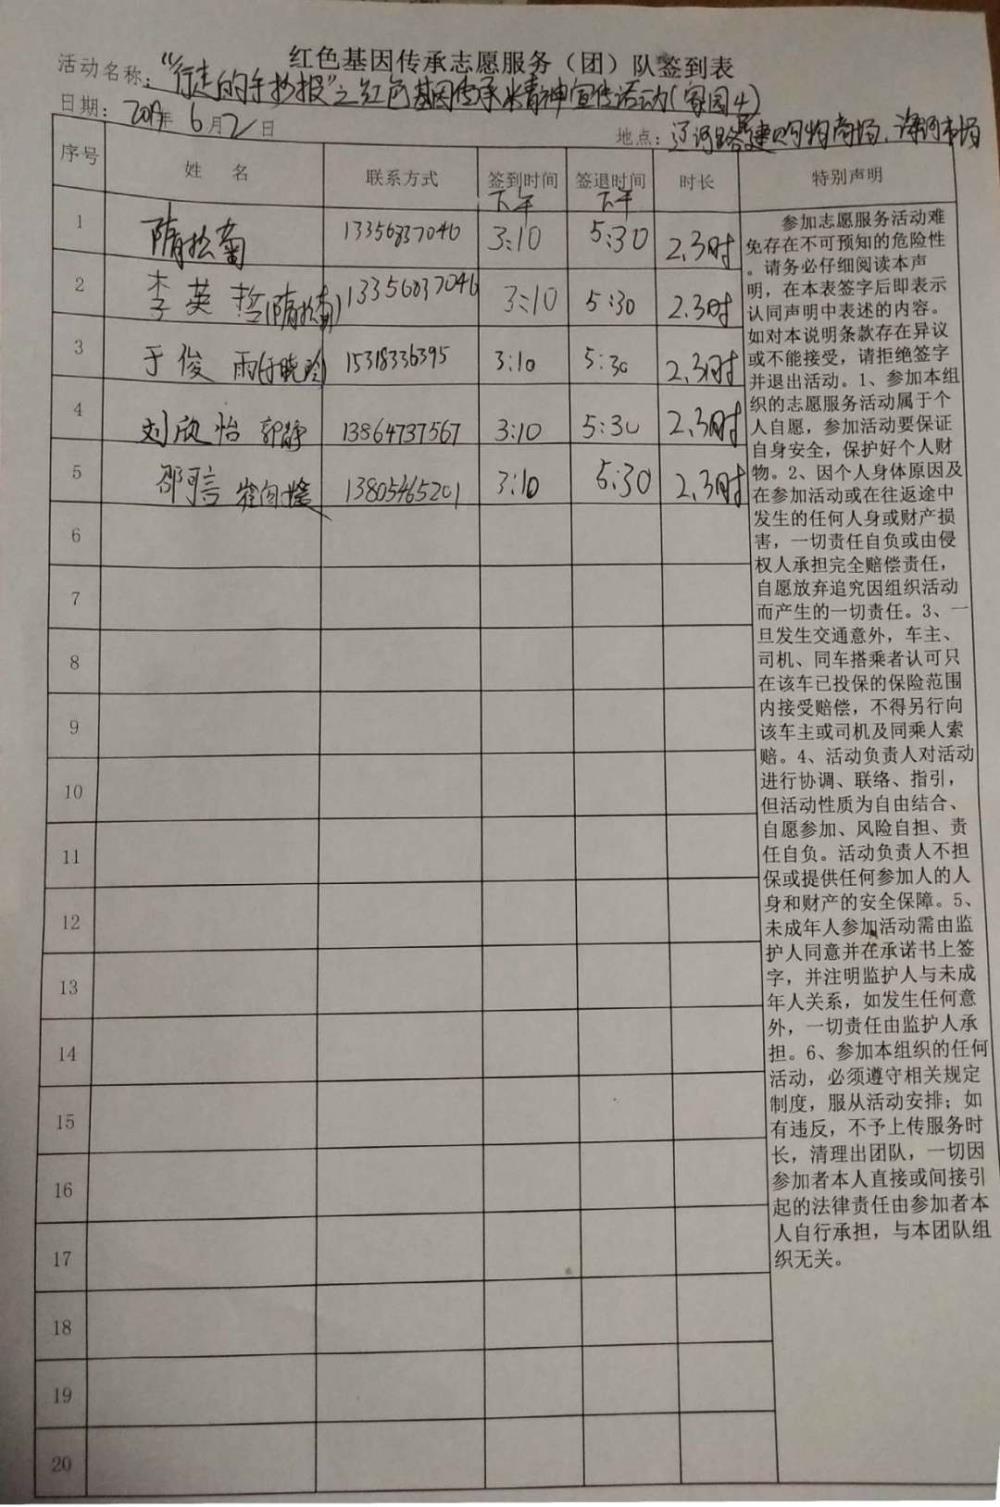 红色基因传承志愿服务（团）队签到表
活动名称：“行走的手抄报”之红色基因传承 精神宣传活动（家园4）
日期：2019年6月2日
地点：辽河路 建购物商场、海河市场
序号 姓名 联系方式 签到时间 下午 签退时间 下午 时长 特别声明
1 隋松菊 13356837040 3:10 5:30 2.3时
2 李英哲（隋松菊） 13356837046 3:10 5:30 2.3时
3 于俊雨（于晓玲） 15318336395 3:10 5:30 2.3时
4 刘欣怡 郭静 13864737567 3:10 5:30 2.3时
5 邵可言 崔向 13805465201 3:10 5:30 2.3时
6
7
8
9
10
11
12
13
14
15
16
17
18
19
20
参加志愿服务活动难
免存在不可预知的危险性
。请务必仔细阅读本声
明，在本表签字后即表示
认同声明中表述的内容。
如对本说明条款存在异议
或不能接受，请拒绝签字
并退出活动。1、参加本组
织的志愿服务活动属于个
人自愿，参加活动要保证
自身安全，保护好个人财
物。2、因个人身体原因及
在参加活动或在往返途中
发生的任何人身或财产损
害，一切责任自负或由侵
权人承担完全赔偿责任，
自愿放弃追究因组织活动
而产生的一切责任。3、一
旦发生交通意外，车主、
司机、同车搭乘者认可只
在该车已投保的保险范围
内接受赔偿，不得另行向
该车主或司机及同乘人索
赔。4、活动负责人对活动
进行协调、联络、指引，
但活动性质为自由结合、
自愿参加、风险自担、责
任自负。活动负责人不担
保或提供任何参加人的人
身和财产的安全保障。5、
未成年人参加活动需由监
护人同意并在承诺书上签
字，并注明监护人与未成
年人关系，如发生任何意
外，一切责任由监护人承
担。6、参加本组织的任何
活动，必须遵守相关规定
制度，服从活动安排；如
有违反，不予上传服务时
长，清理出团队，一切因
参加者本人直接或间接引
起的法律责任由参加者本
人自行承担，与本团队组
织无关。